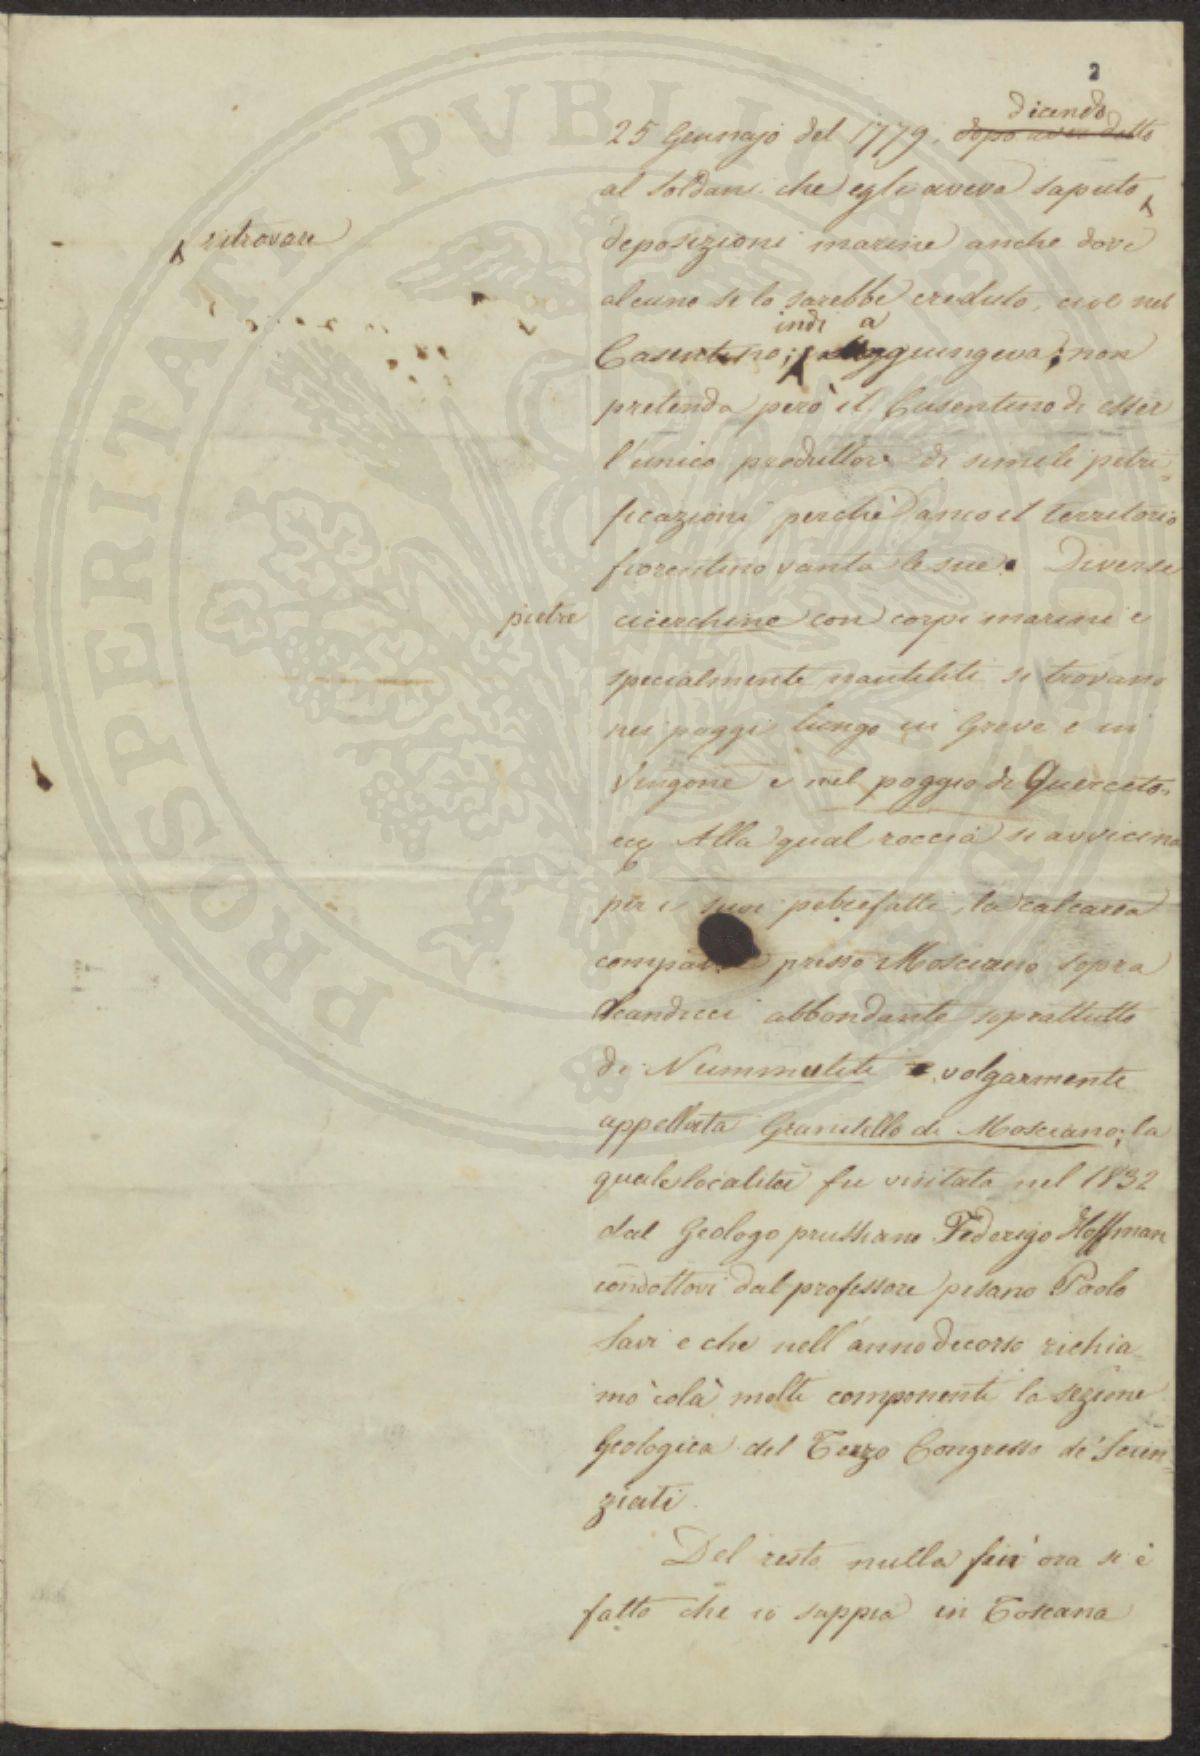 2
dicendo
25 Gennajo del 1779. dopo aver detto
al Soldani che egli aveva saputo
ritrovare
deposizioni marine anche dove
alcuno se lo sarebbe creduto, cioè nel
indi a
Casentino; aggiungeva; non
pretenda però il Casentino di esser
l'unico produttore di simili petri-
ficazioni perchè anco il territorio
fiorentino vanta le sue. Diverse
pietre cicerchine con corpi marini e
specialmente nautiliti si trovano
nei poggi lungo in Greve e in
Vingone e nel poggio di Querceto.
ecc. Alla qual roccia si avvicina
per i suoi petrefatti, la calcarea
presso Mosciano sopra
Scandicci abbondante soprattutto
di Nummuliti e volgarmente
appellata Granitello di Mosciano; la
quale località fu visitata nel 1832
dal Geologo prussiano Federigo Hoffman
condottovi dal professore pisano Paolo
Savi e che nell'anno decorso richia-
mò colà molti componenti la sezione
Geologica del Terzo Congresso de' Scien-
ziati.
Del resto nulla fin'ora si è
fatto che io sappia in Toscana
PROSPERITATI PVBLICAE